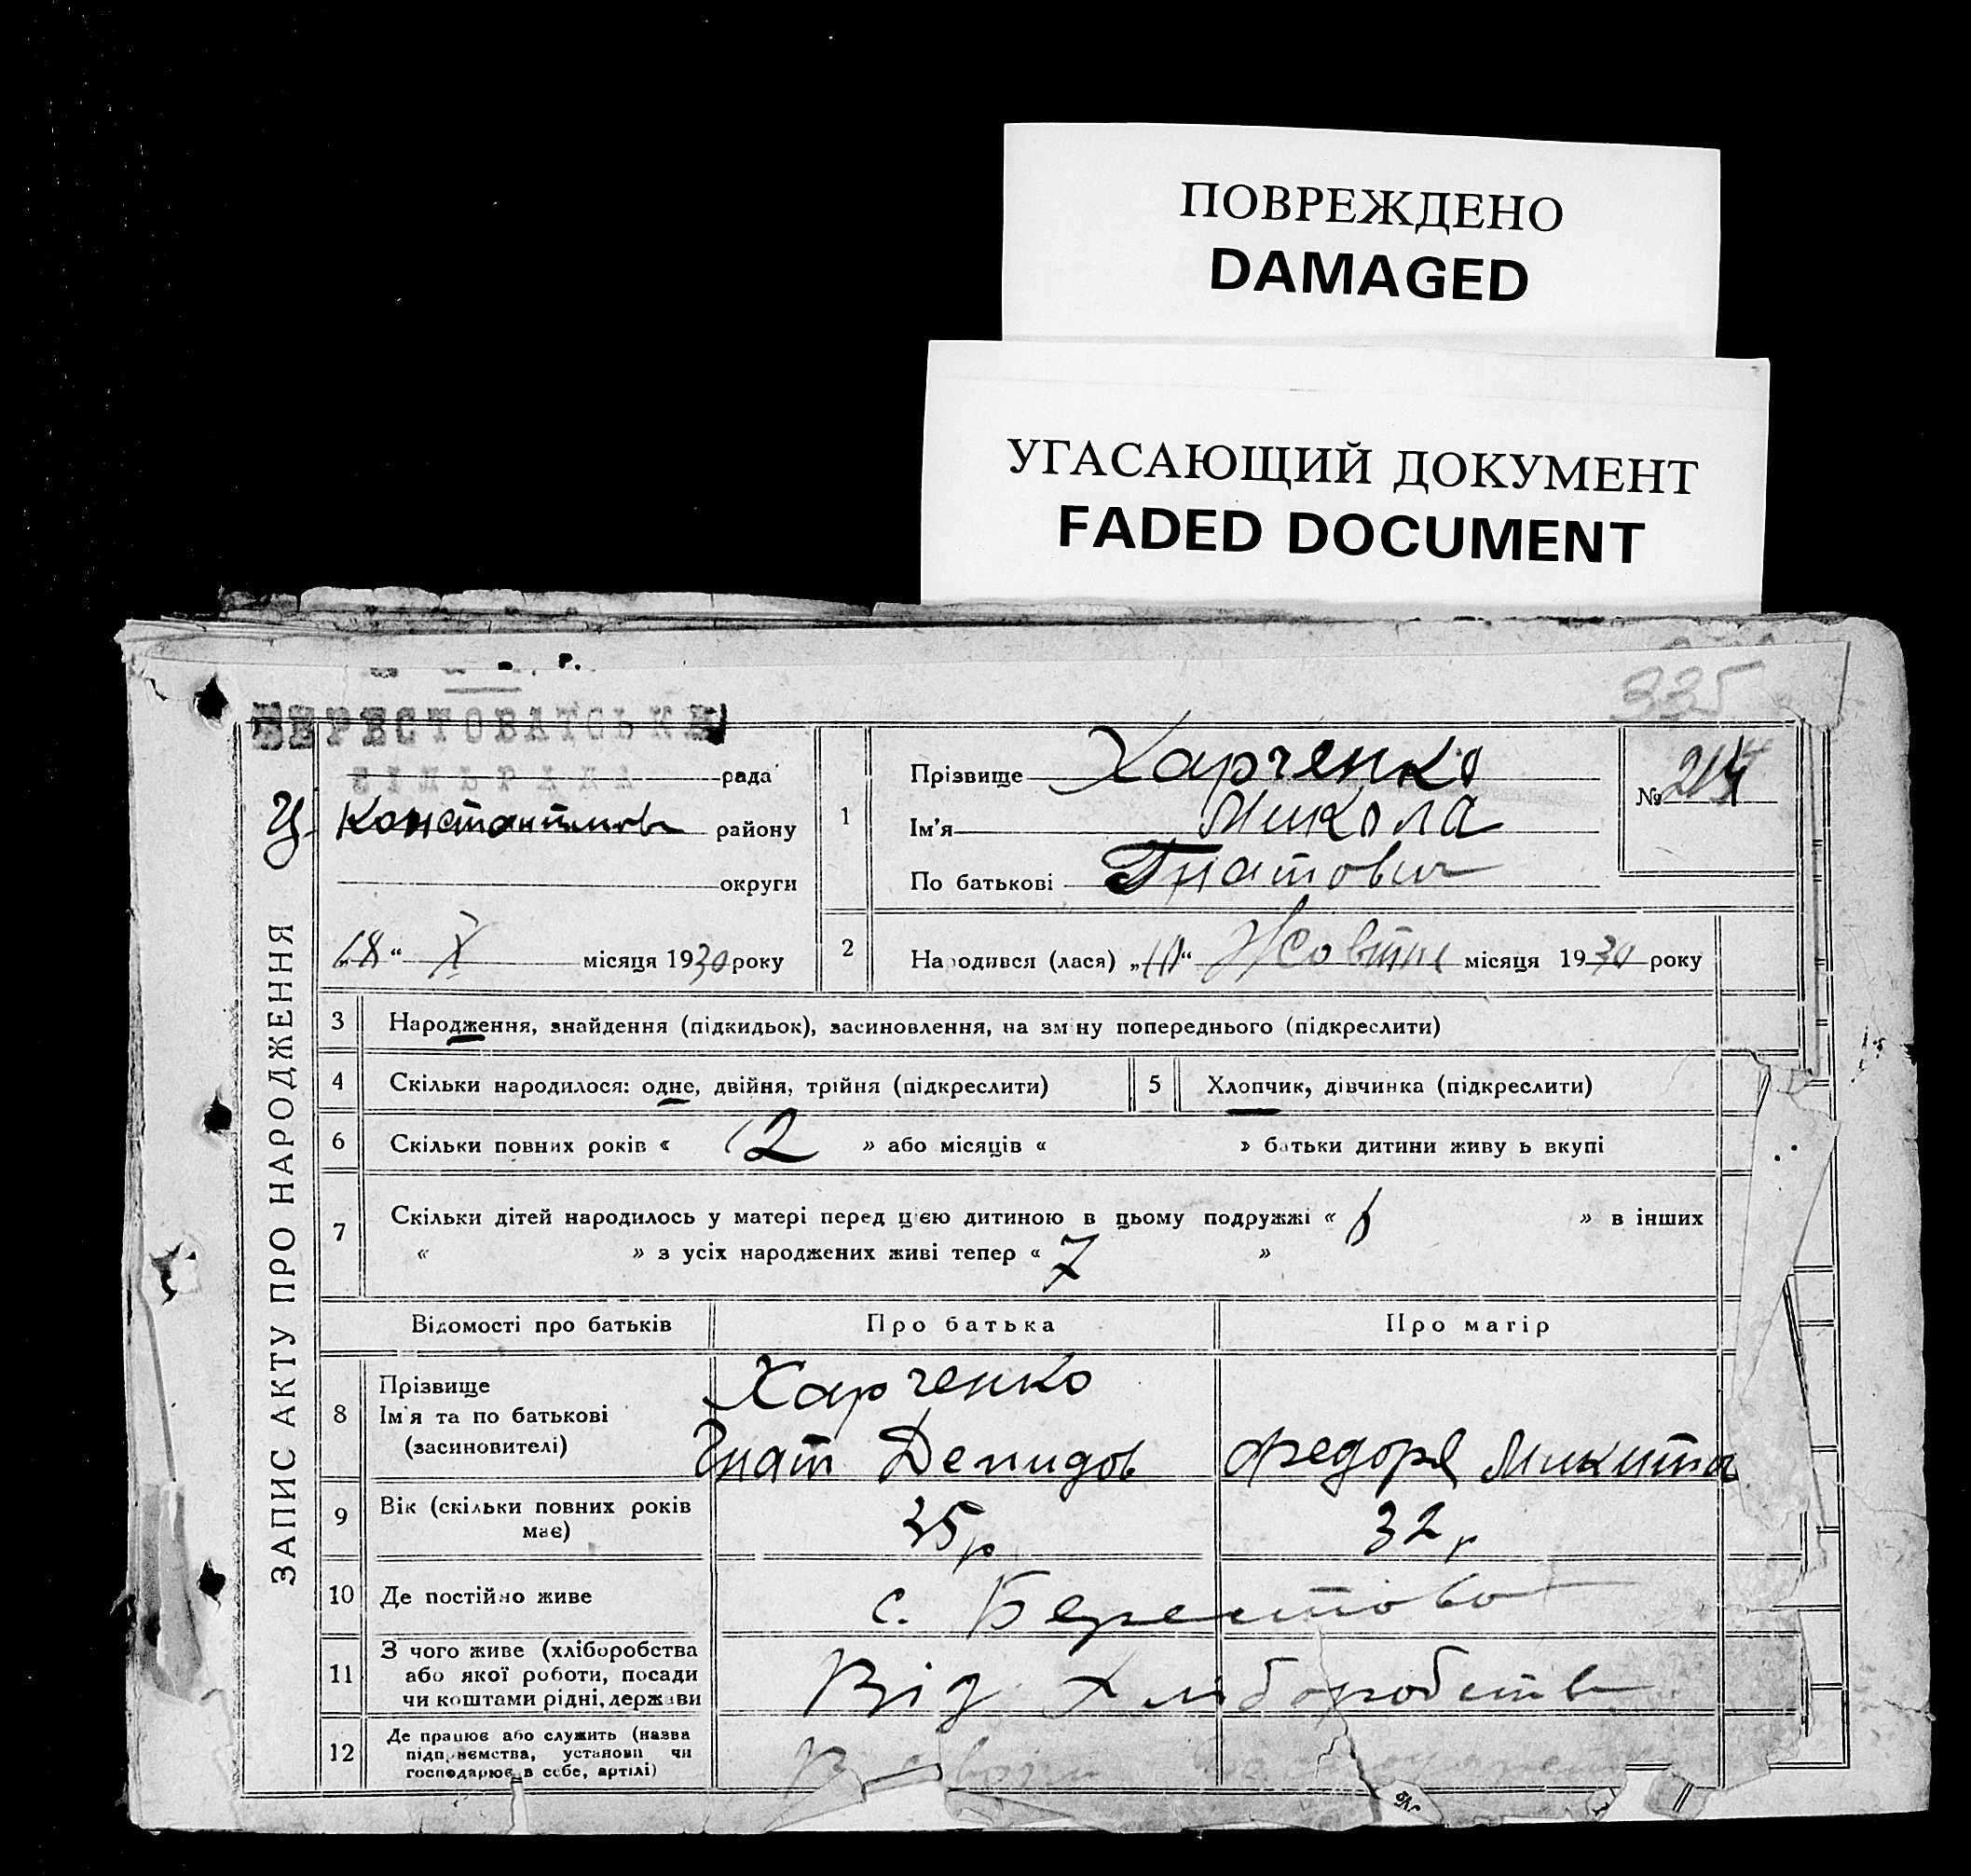 ПОВРЕЖДЕНО
DAMAGED
УГАСАЮЩИЙ ДОКУМЕНТ
FADED DOCUMENT
335
БЕРЕСТОВАТСЬКА
СІЛЬРАДА рада
Константинов району
округи
„18“ X місяця 1930 року
ЗАПИС АКТУ ПРО НАРОДЖЕННЯ
1 Прізвище Харченко
Ім'я Микола
По батькові Гнатович
№ 214
2 Народився (лася) місяця 1930 року
3 Народження, знайдення (підкидьок), засиновлення, на зміну попереднього (підкреслити)
4 Скільки народилося: одне, двійня, трійня (підкреслити)
5 Хлопчик, дівчинка (підкреслити)
6 Скільки повних років « 12 » або місяців « » батьки дитини живуть вкупі
7 Скільки дітей народилось у матері перед цією дитиною в цьому подружжі « 6 » в інших
« » з усіх народжених живі тепер « 7 »
Відомості про батьків Про батька Про матір
8 Прізвище
Ім'я та по батькові
(засиновителі)
Харченко
Гнат Демидов
Федоря Микита
9 Вік (скільки повних років
має)
35 р
32 р
10 Де постійно живе
с. Берестова
11 З чого живе (хліборобства
або якої роботи, посади
чи коштами рідні, держави
Від хліборобств
12 Де працює або служить (назва
підприємства, установи чи
господарює в себе, артілі)